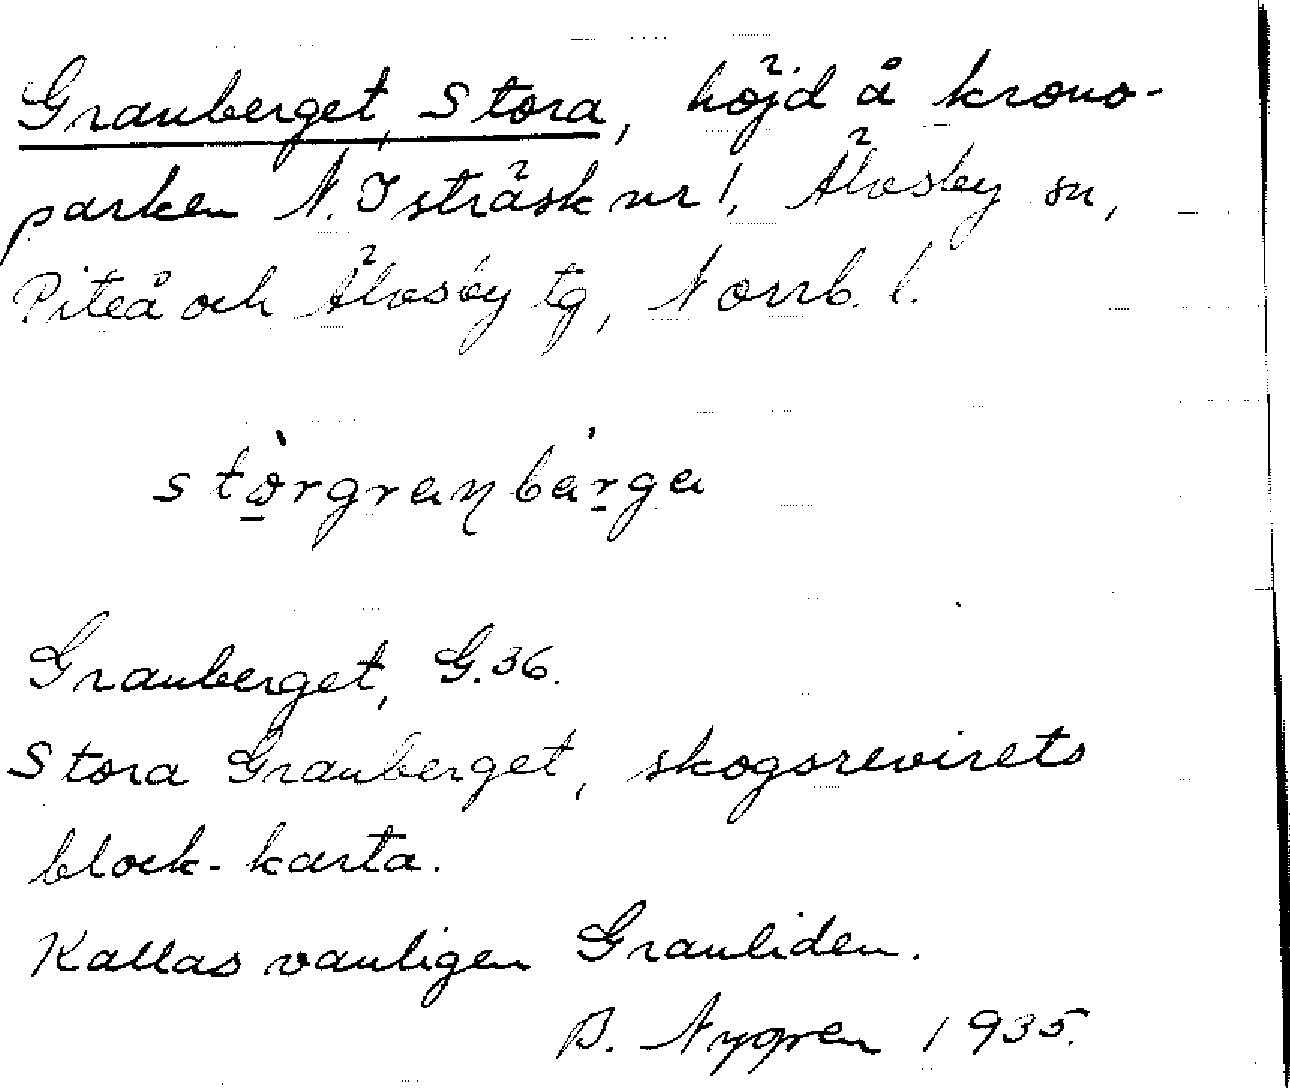 Granberget, Stora, höjd å krono-
parken N. Isträsk nr 1, Älvsby sn,
Piteå och Älvsby tg, Norrb. l.
stòrgranbárga
Granberget, G.36.
Stora Granberget, skogsrevirets
block-karta.
Kallas vanligen Granliden.
B. Nygren 1935.